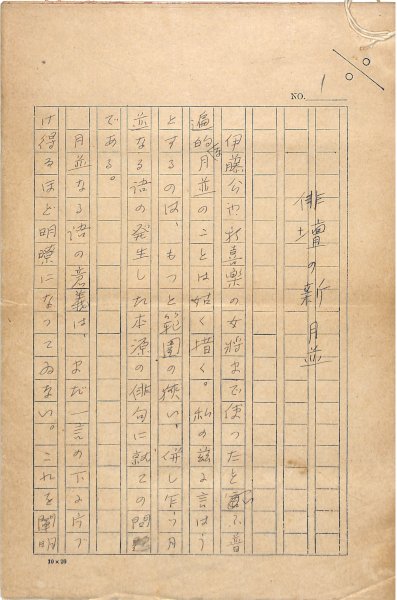 NO. 1
俳壇の新月並
伊藤公や新喜楽の女将まで使つたと云ふ普
遍的な月並のことは姑く措く。私の茲に言はう
とするのは、もつと範囲の狭い、併し乍ら月
並なる語の発生した本源の俳句に就ての問
である。
月並なる語の意義は、まだ一言の下に片づ
け得るほど明瞭になつてゐない。これを闡明
10×20